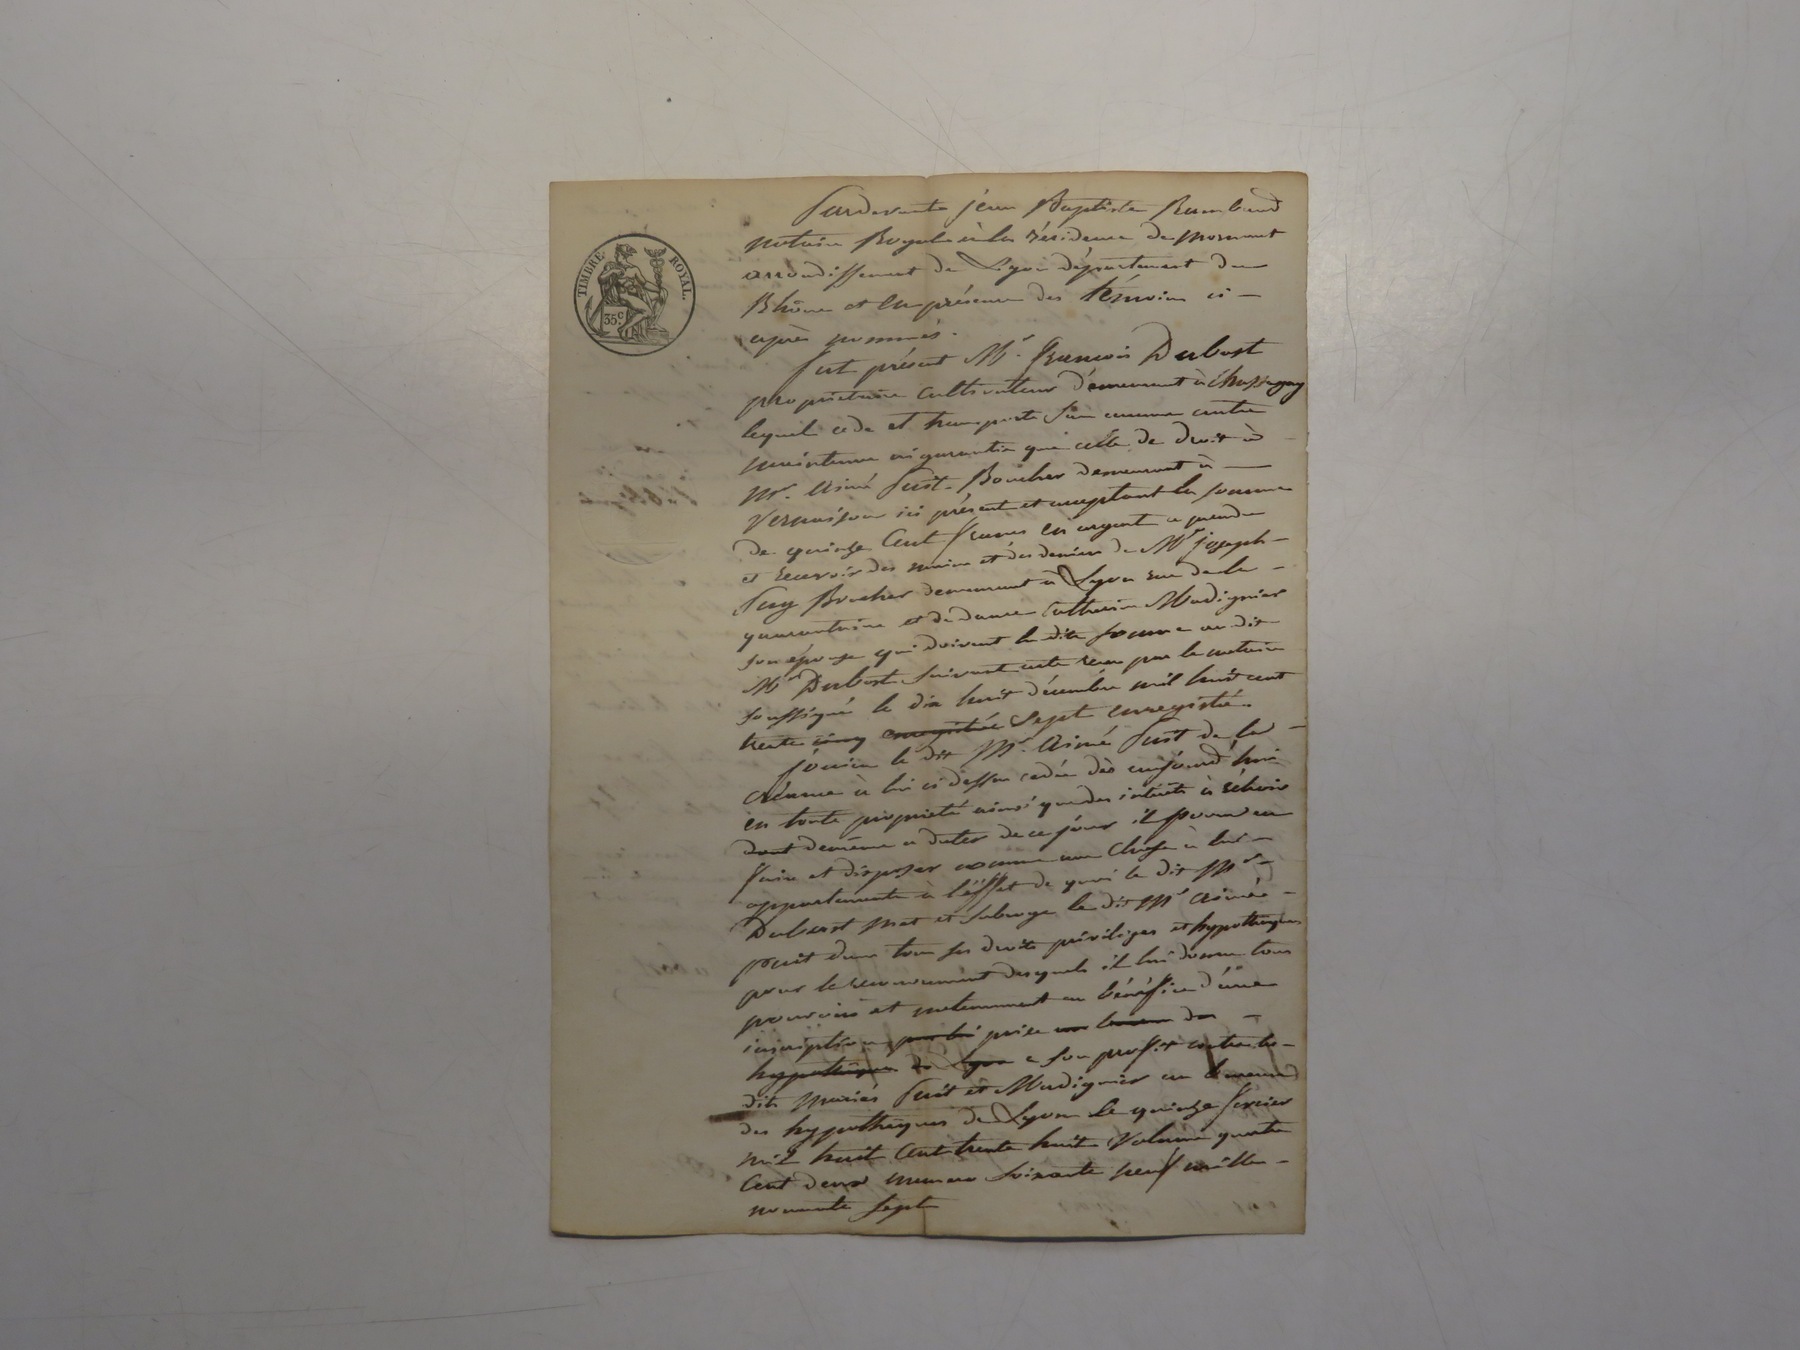 TIMBRE ROYAL.
35 c.
Pardevant jean Baptiste Rambaud
notaire Royal à la résidence de Mornant
arrondissement de Lyon département du
Rhône et en présence des témoins ci
après nommés.
fut présent Mr. François Dubost
propriétaire cultivateur demeurant à Chassagny
lequel cède et transporte sans aucune autre
maintenue ni garantie que celle de droit à
Mr. Aimé Boucher demeurant à
Vernaison ici présent et acceptant la somme
de quinze Cent francs en argent a prendre
et recevoir des mains et des deniers de Mr joseph
Boucher demeurant à Lyon rue de la
quarantaine et de dame Catherine Madignier
son épouse qui doivent la dite somme au dit
Mr Dubost suivant acte reçu par le notaire
soussigné le dix huit décembre mil huit cent
trente cinq enregistrée sept enregistré.
Jouira le dit Mr. Aimé de la
créance à lui ci dessus cédée dès aujourd'hui
en toute propriété ainsi que des intérêts à échoir
dont demême a dater de ce jour il pourra en
faire et disposer comme une chose à lui
appartenante à l'éffet de quoi le dit Mr
Dubost met et subroge le dit Mr Aimé
dans tous ses droits privilèges et hypothèques
pour le recouvrement desquels il lui donne tous
pouvoirs et notamment au bénéfice d'une
inscription par lui prise au bureau des
hypothèques de Lyon a son profit contre les
dits mariés et Madignier au bureau
des hypothèques de Lyon le quinze février
mil huit Cent trente huit Volume quatre
Cent deux numero soixante neuf mille
nonante sept